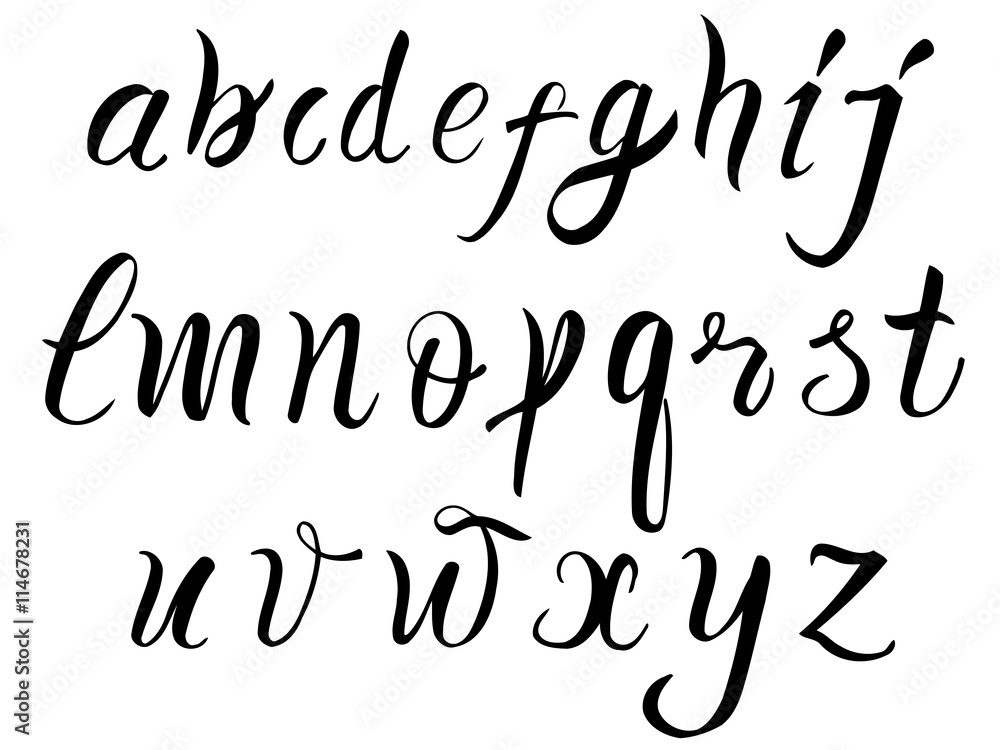 abcdefghij
lmnopqrst
uvwxyz
Adobe Stock | #114678231